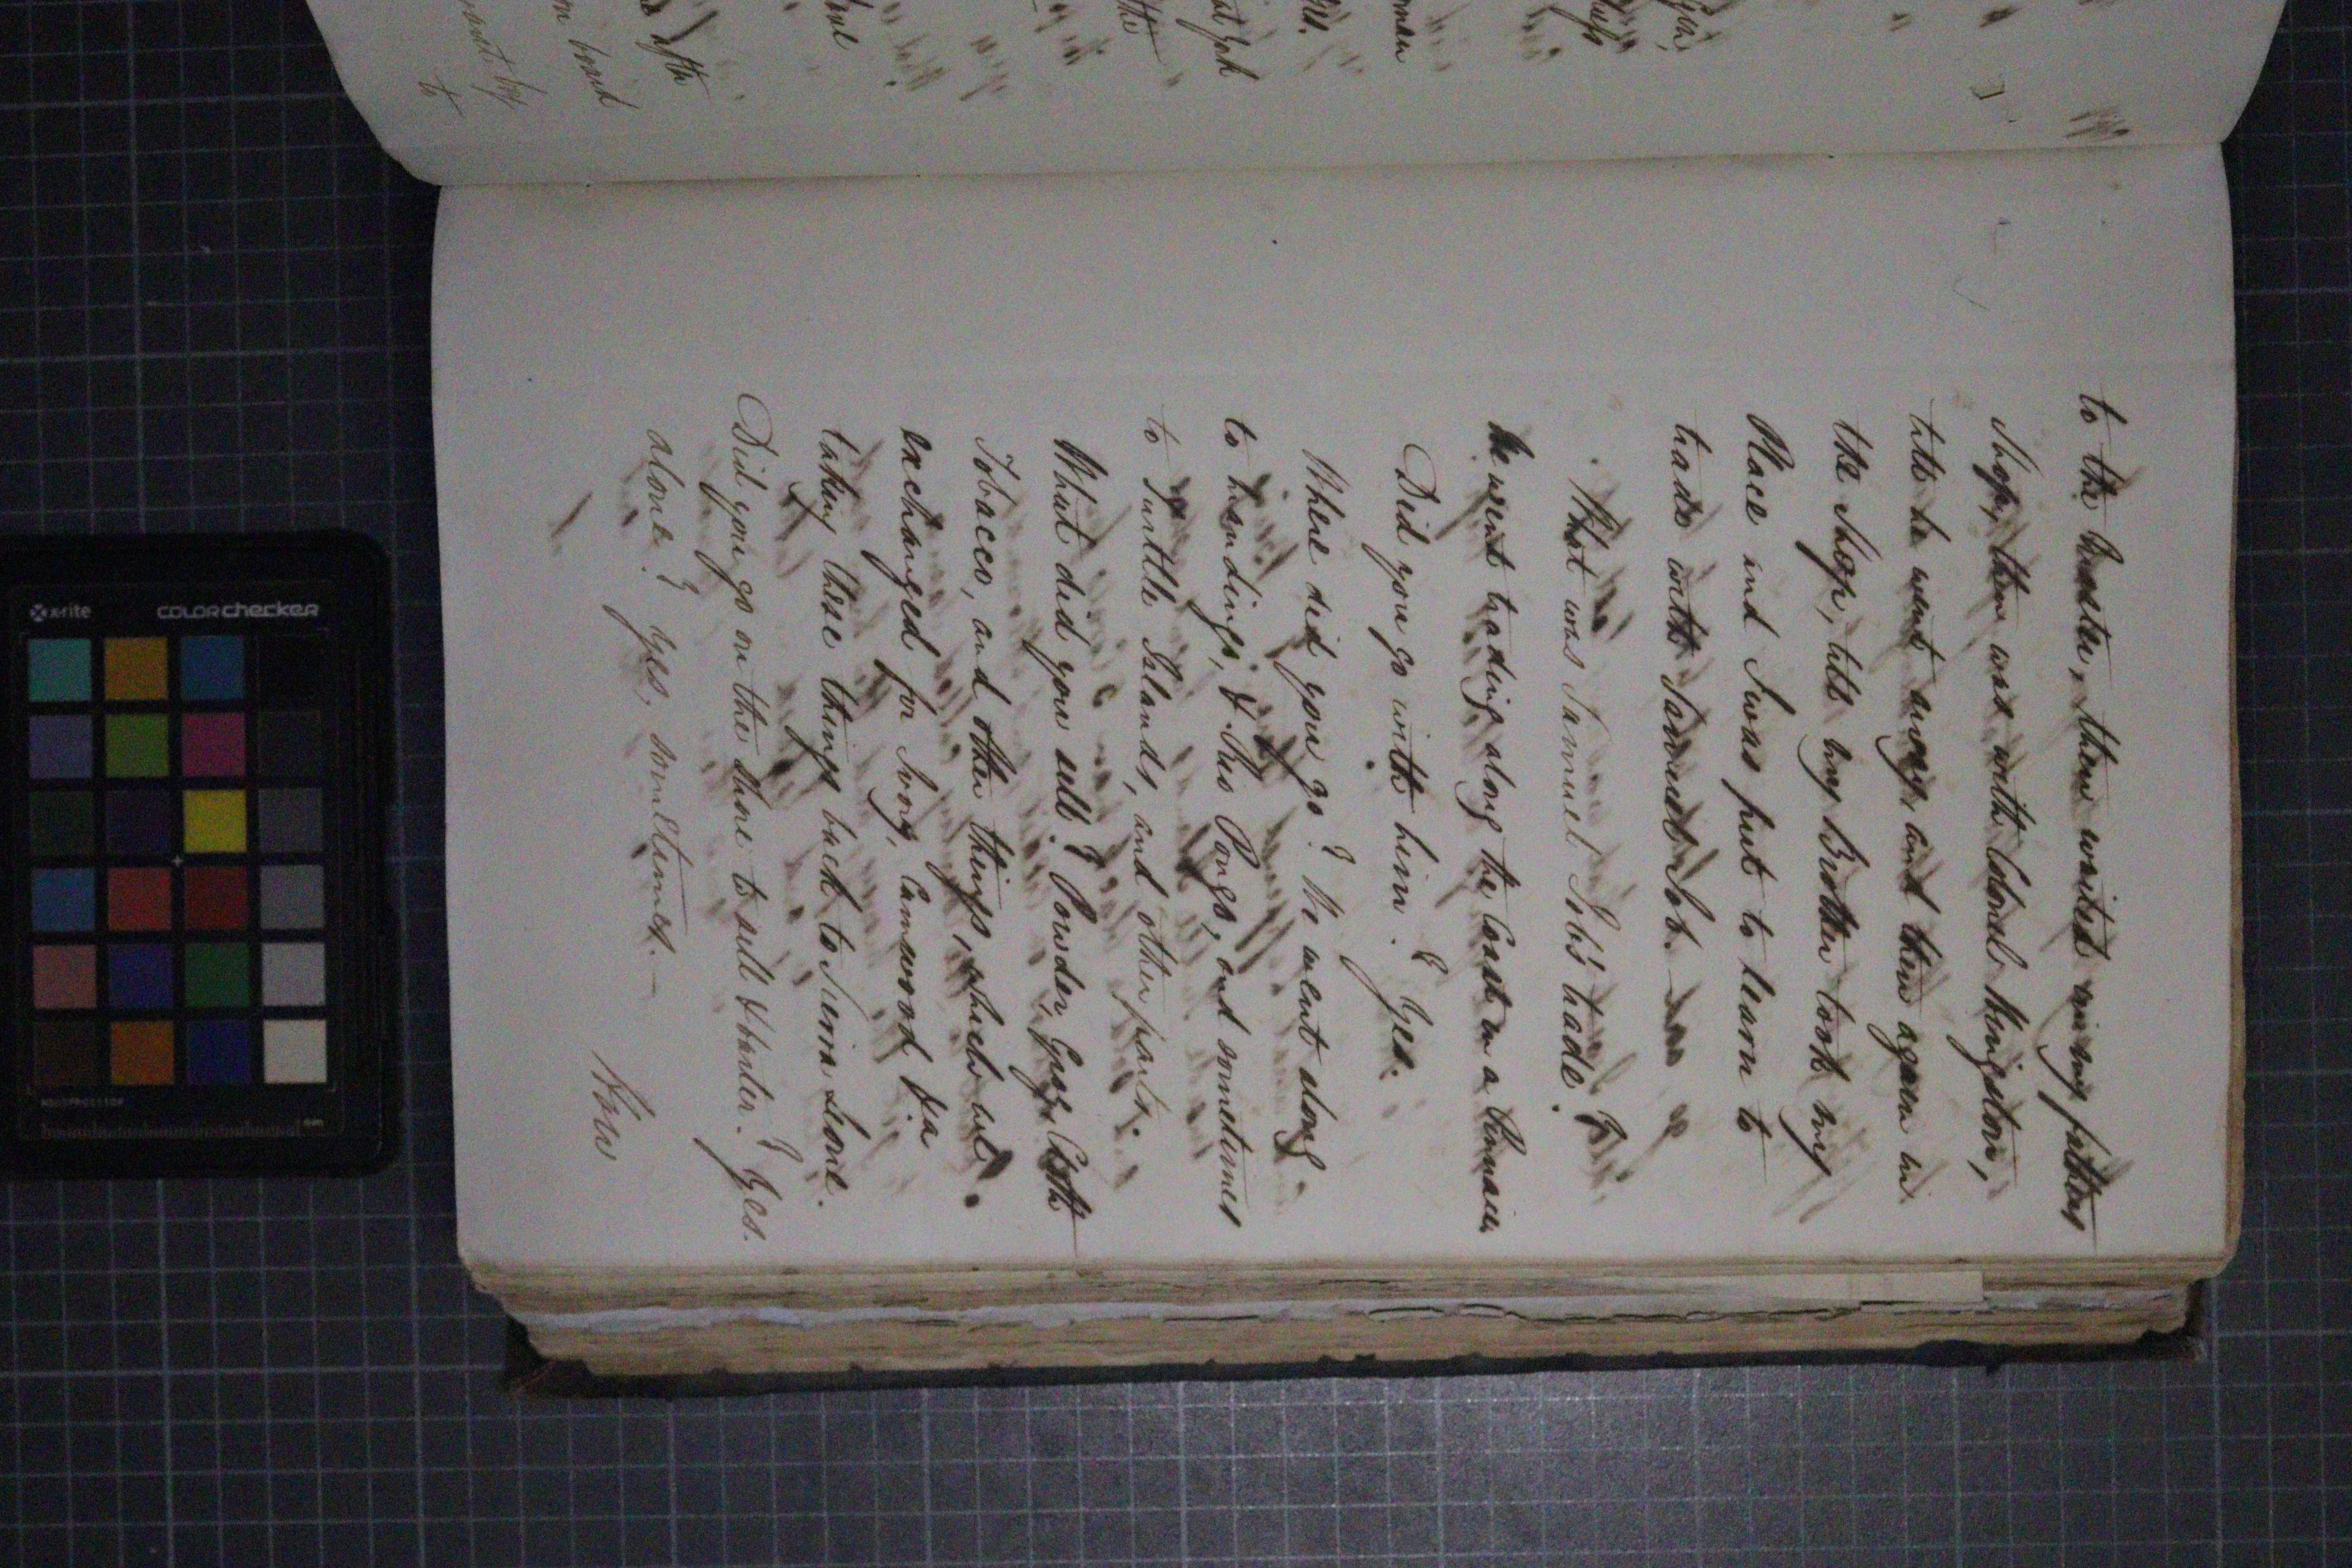 to the Master, then waited in my fathers
Shop, then was with Colonels Kingston,
till he went away, and then again in
the Shop, till my Brother took my
Place and I was put to learn to
trade with Samuel Job.
What was Samuel Job's trade?
He went trading along the Coast in a Pinnace,
Did you go with him? Yes.
Where did you go? We went along
to Mandingo, & Rio Pongo, and sometimes
to Turttle Islands, and other parts.
What did you sell? Powder, Guns, Cloth
Tobacco, and other things, which we
exchanged for Ivory, Camwood &ca
taking these things back to Sierra Leone.
Did you go on the shore to sell & barter? Yes.
alone? Yes, sometimes.—
How
after
on board
sent by
to
the
man